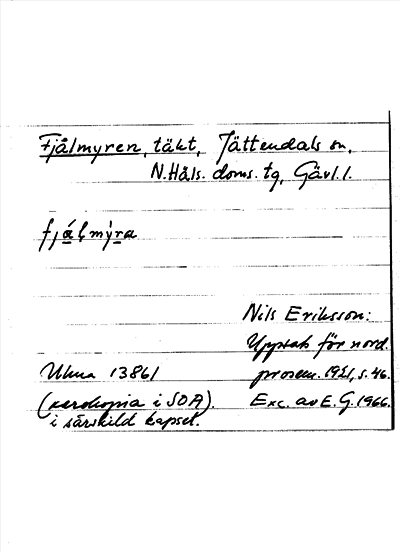 Fjålmyren, täkt, Jättendals sn,
N. Häls. doms. tg, Gävl. l.
fjålmyra
Nils Eriksson:
Uppsats för nord.
Ulma 13861 prosem. 1921, s. 46.
(xerokopia i SOA). Exc. av E. G. 1966.
i särskild kapsel.